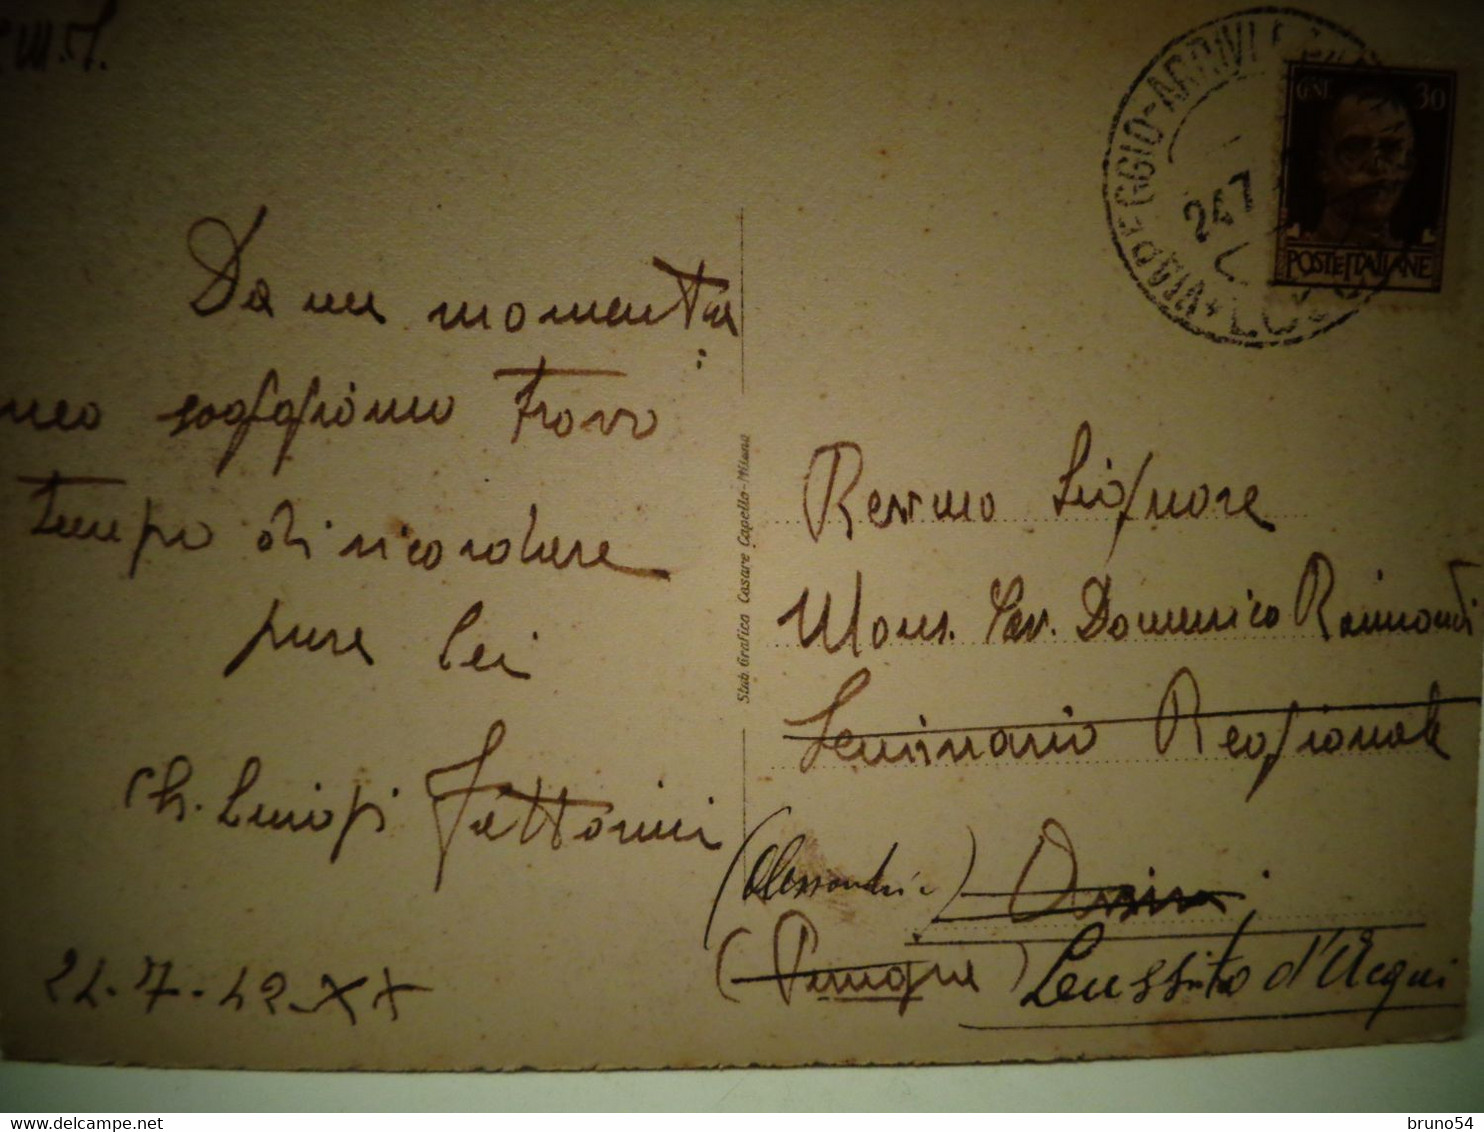 Da un momenta
neo soggiorno trovo
tempo di ricordare
pure Lei
Ch. Luigi Fattorini
21-7-42-XX
Stab Grafico Cesare Capello-Milano
VIAREGGIO-ARRIVI
247
CENT 30
POSTE ITALIANE
Rev.mo Signore
Mons. Cav. Domenico Raimondi
Seminario Regionale
(Alessandria) Assisi
(Perugia) Lussito d'Acqui
bruno54